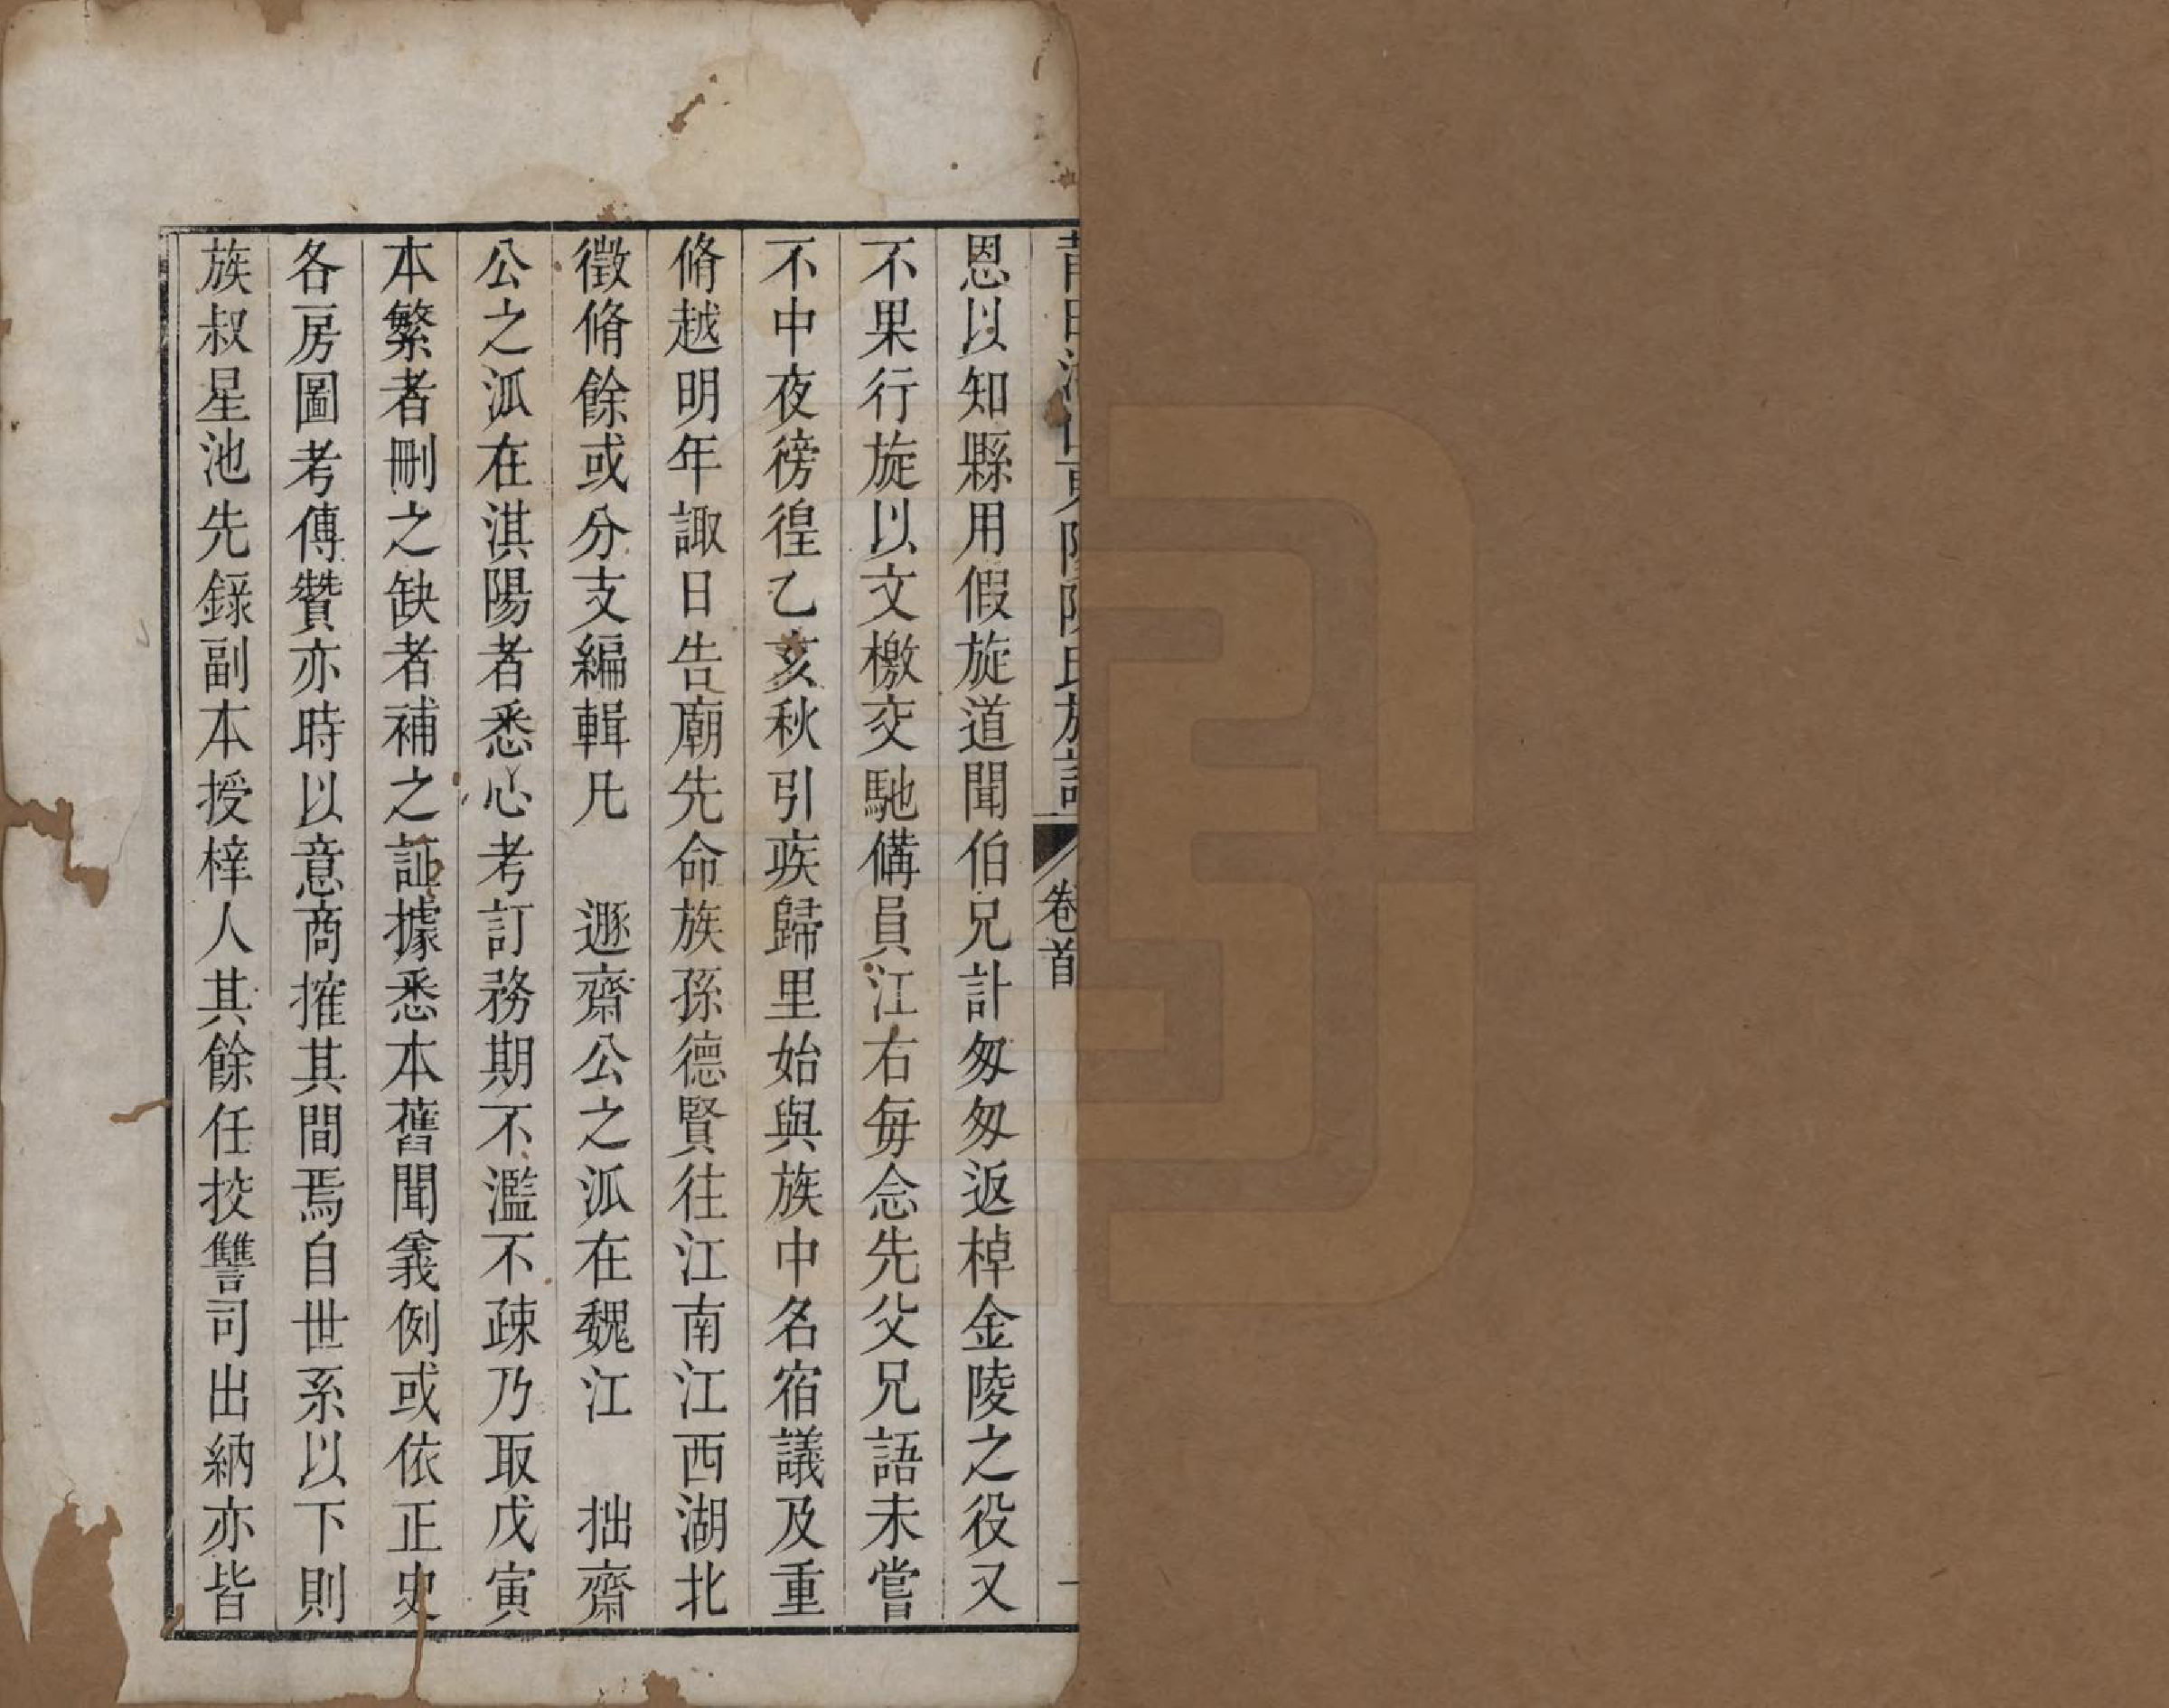 卷首
恩以知縣用假旋道聞伯兄計匆匆返棹金陵之役又
不果行旋以文檄交馳備員江右每念先父兄語未嘗
不中夜徬徨乙亥秋引疾歸里始與族中名宿議及重
脩越明年諏日告廟先命族孫德賢往江南江西湖北
徵脩餘或分支編輯凡　遯齋公之派在魏江　拙齋
公之派在淇陽者悉心考訂務期不濫不疎乃取戊寅
本繁者刪之缺者補之証據悉本舊聞義例或依正史
各房圖考傳贊亦時以意商搉其間焉自世系以下則
族叔星池先錄副本授梓人其餘任挍讐司出納亦皆